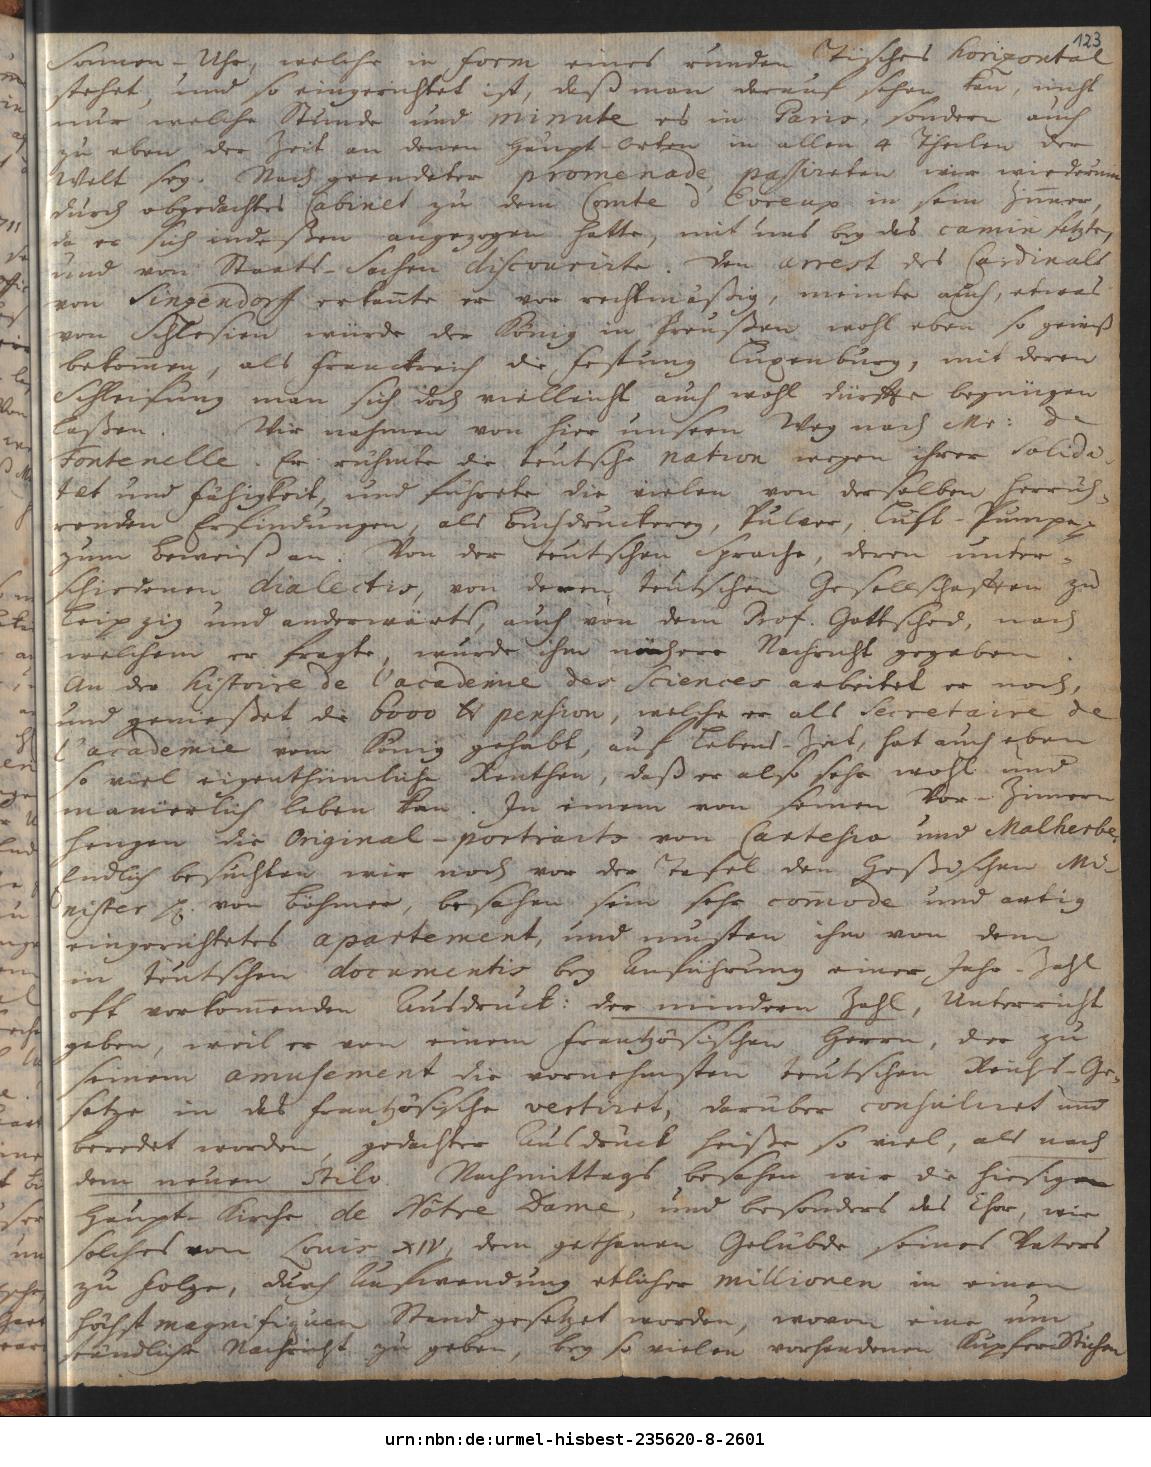 123
Sonnen-Uhr, welche in form eines runden Tisches horizontal
stehet, und so eingerichtet ist, daß man darauf sehen kan, nicht
nur welche Stunde und minute es in Paris, sondern auch
zu eben der Zeit an denen Haupt-Orten in allen 4 Theilen der
Welt sey. Nach geendeter promenade, passireten wir wiederum
durch obgedachtes Cabinet zu dem Comte d'Evreux in sein Zimmer,
da er sich indeßen angezogen hatte, mit uns bey das camin setzte,
und von Staats-Sachen discourirte. Den arrest des Cardinals
von Sinzendorff erkante er vor rechtmäßig, meinte auch, etwas
von Schlesien würde der König in Preußen wohl eben so gewiß
bekommen, als Franckreich die Festung Luxenburg, mit deren
Schleifung man sich doch vielleicht auch wohl dürffte begnügen
laßen. Wir nahmen von hier unsern Weg nach Mr: de
Fontenelle. Er rühmte die teutsche nation wegen ihrer Solidi-
tet und Fähigkeit, und führete die vielen von derselben herrüh-
renden Erfindungen, als Buchdruckerey, Pulver, Luft-Pumpe,
zum Beweiß an. Von der teutschen Sprache, deren unter-
schiedenen dialectis, von denen teutschen Gesellschafften zu
Leipzig und anderwärts, auch von dem Prof. Gottsched, nach
welchem er fragte, wurde ihm nähere Nachricht gegeben.
An der histoire de l'academie des Sciences arbeitet er noch,
und genießet die 6000 pension, welche er als Secretaire de
l'academie vom König gehabt, auf Lebens-Zeit, hat auch eben
so viel eigenthümliche Renthen, daß er also sehr wohl und
manierlich leben kan. In einem von seinen Vor-Zimern
hengen die Original-portraits von Cartesio und Malherbe.
Endlich besuchten wir noch vor der Tafel den Heßischen Mi-
nister von Böhmer, besahen sein sehr comode und artig
eingerichtetes apartement, und musten ihm von dem
in teutschen documentis bey Anführung einer Jahr-Zahl
oft vorkommenden Ausdruck: der mindern Zahl, Unterricht
geben, weil er von einem Frantzösischen Herrn, der zu
seinem amusement die vornehmsten teutschen Reichs-Ge-
setze in das Frantzösische vertiret, darüber consuliret und
beredet worden, gedachter Ausdruck heiße so viel, als nach
dem neuen Stilo. Nachmittags besahen wir die hiesige
Haupt-Kirche de Nôtre Dame, und besonders das Chor, wie
solches von Louis XIV, dem gethanen Gelübde seines Vaters
zu folge, durch Aufwendung etlicher millionen in einen
höchst magnifiquen Stand gesetzet worden, wovon eine um-
ständliche Nachricht zu geben, bey so vielen vorhandenen Kupfer-Stichen
urn:nbn:de:urmel-hisbest-235620-8-2601